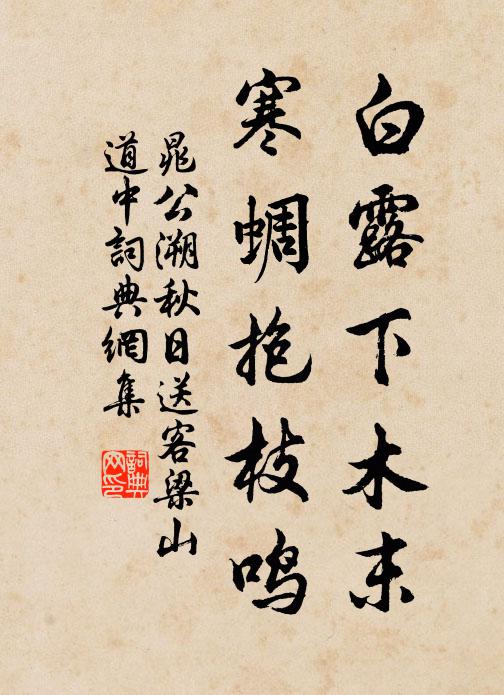 白露下木末
寒蜩抱枝鸣
晁公溯秋日送客梁山
道中詞典網集
詞典网印